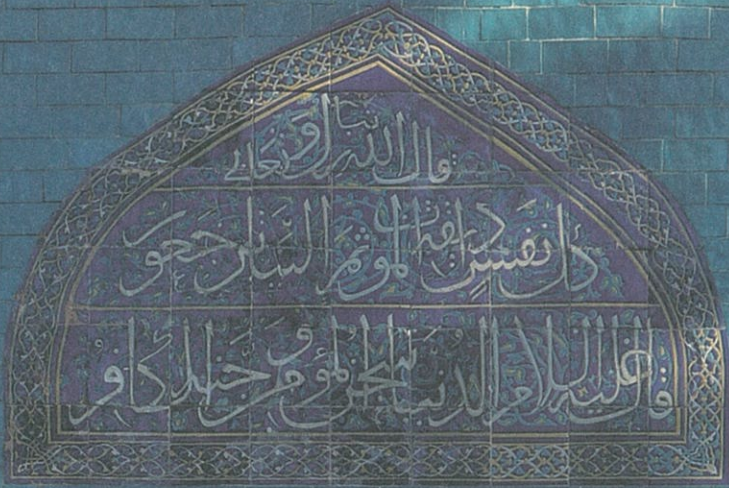 قال الله تبارك وتعالى
كل نفس ذائقة الموت ثم الينا ترجعون
قال عليه السلام الدنيا سجن المؤمن وجنة الكافر